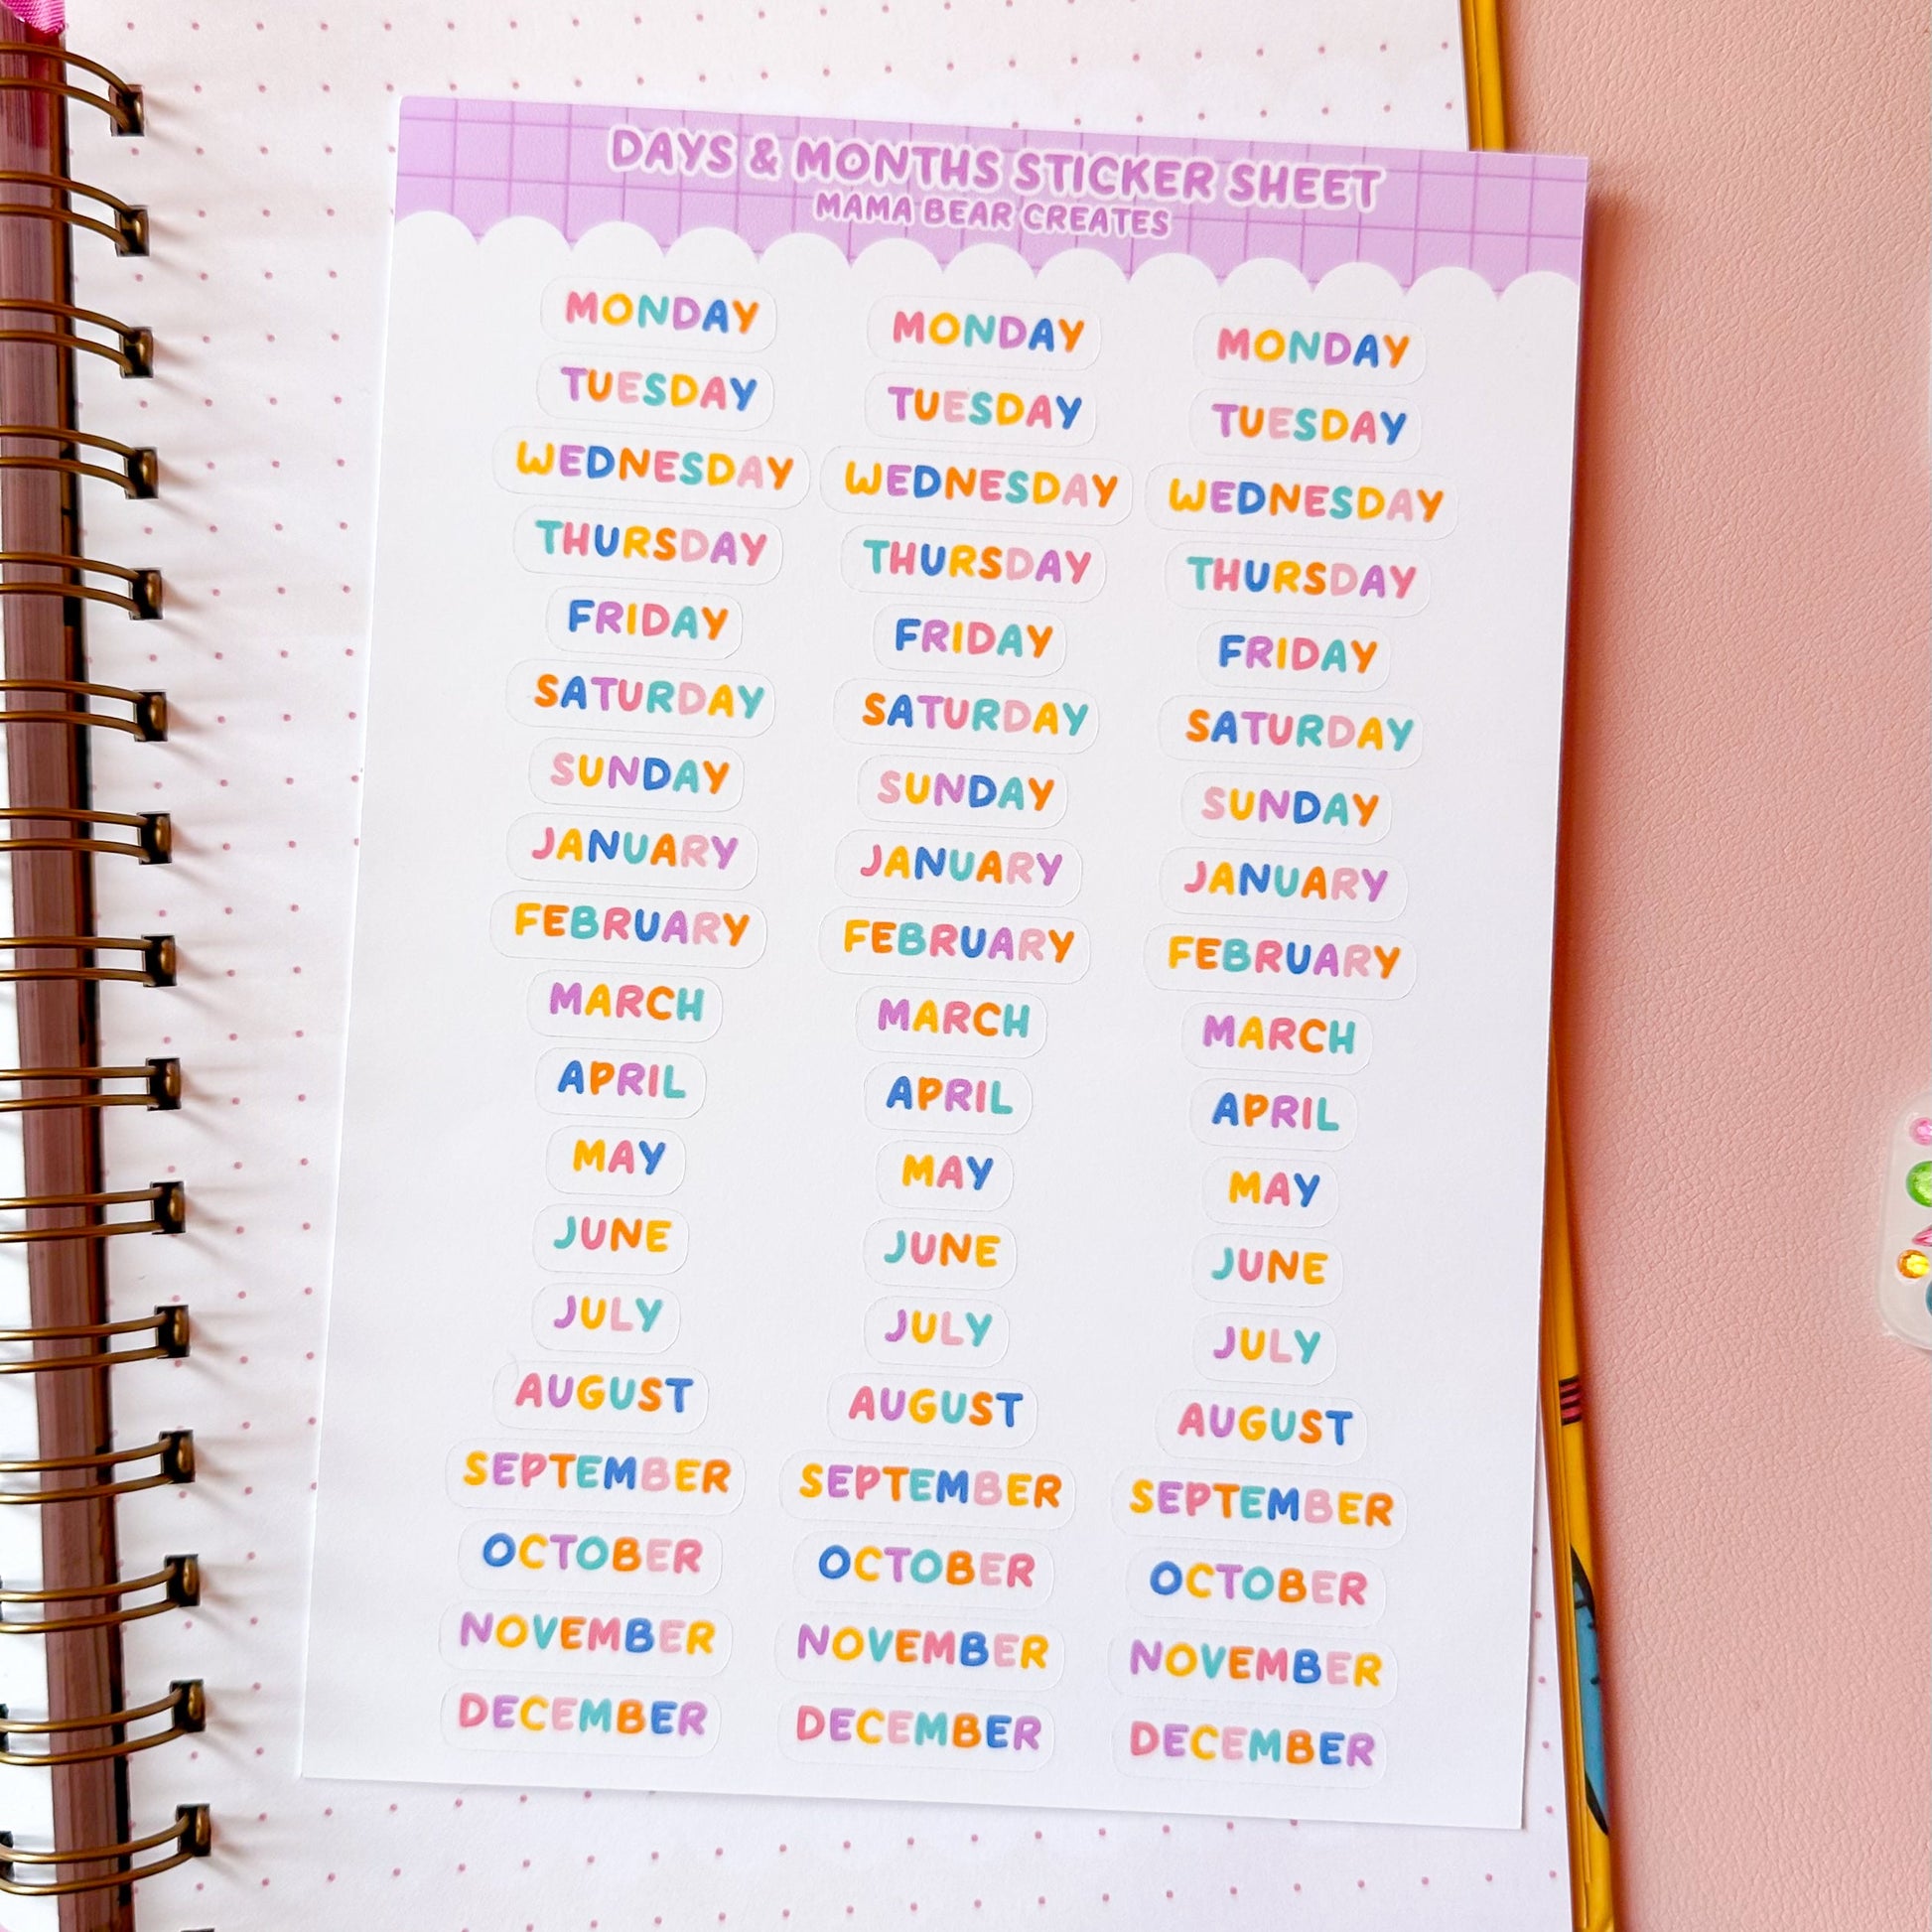 DAYS & MONTHS STICKER SHEET
MAMA BEAR CREATES
MONDAY MONDAY MONDAY
TUESDAY TUESDAY TUESDAY
WEDNESDAY WEDNESDAY WEDNESDAY
THURSDAY THURSDAY THURSDAY
FRIDAY FRIDAY FRIDAY
SATURDAY SATURDAY SATURDAY
SUNDAY SUNDAY SUNDAY
JANUARY JANUARY JANUARY
FEBRUARY FEBRUARY FEBRUARY
MARCH MARCH MARCH
APRIL APRIL APRIL
MAY MAY MAY
JUNE JUNE JUNE
JULY JULY JULY
AUGUST AUGUST AUGUST
SEPTEMBER SEPTEMBER SEPTEMBER
OCTOBER OCTOBER OCTOBER
NOVEMBER NOVEMBER NOVEMBER
DECEMBER DECEMBER DECEMBER